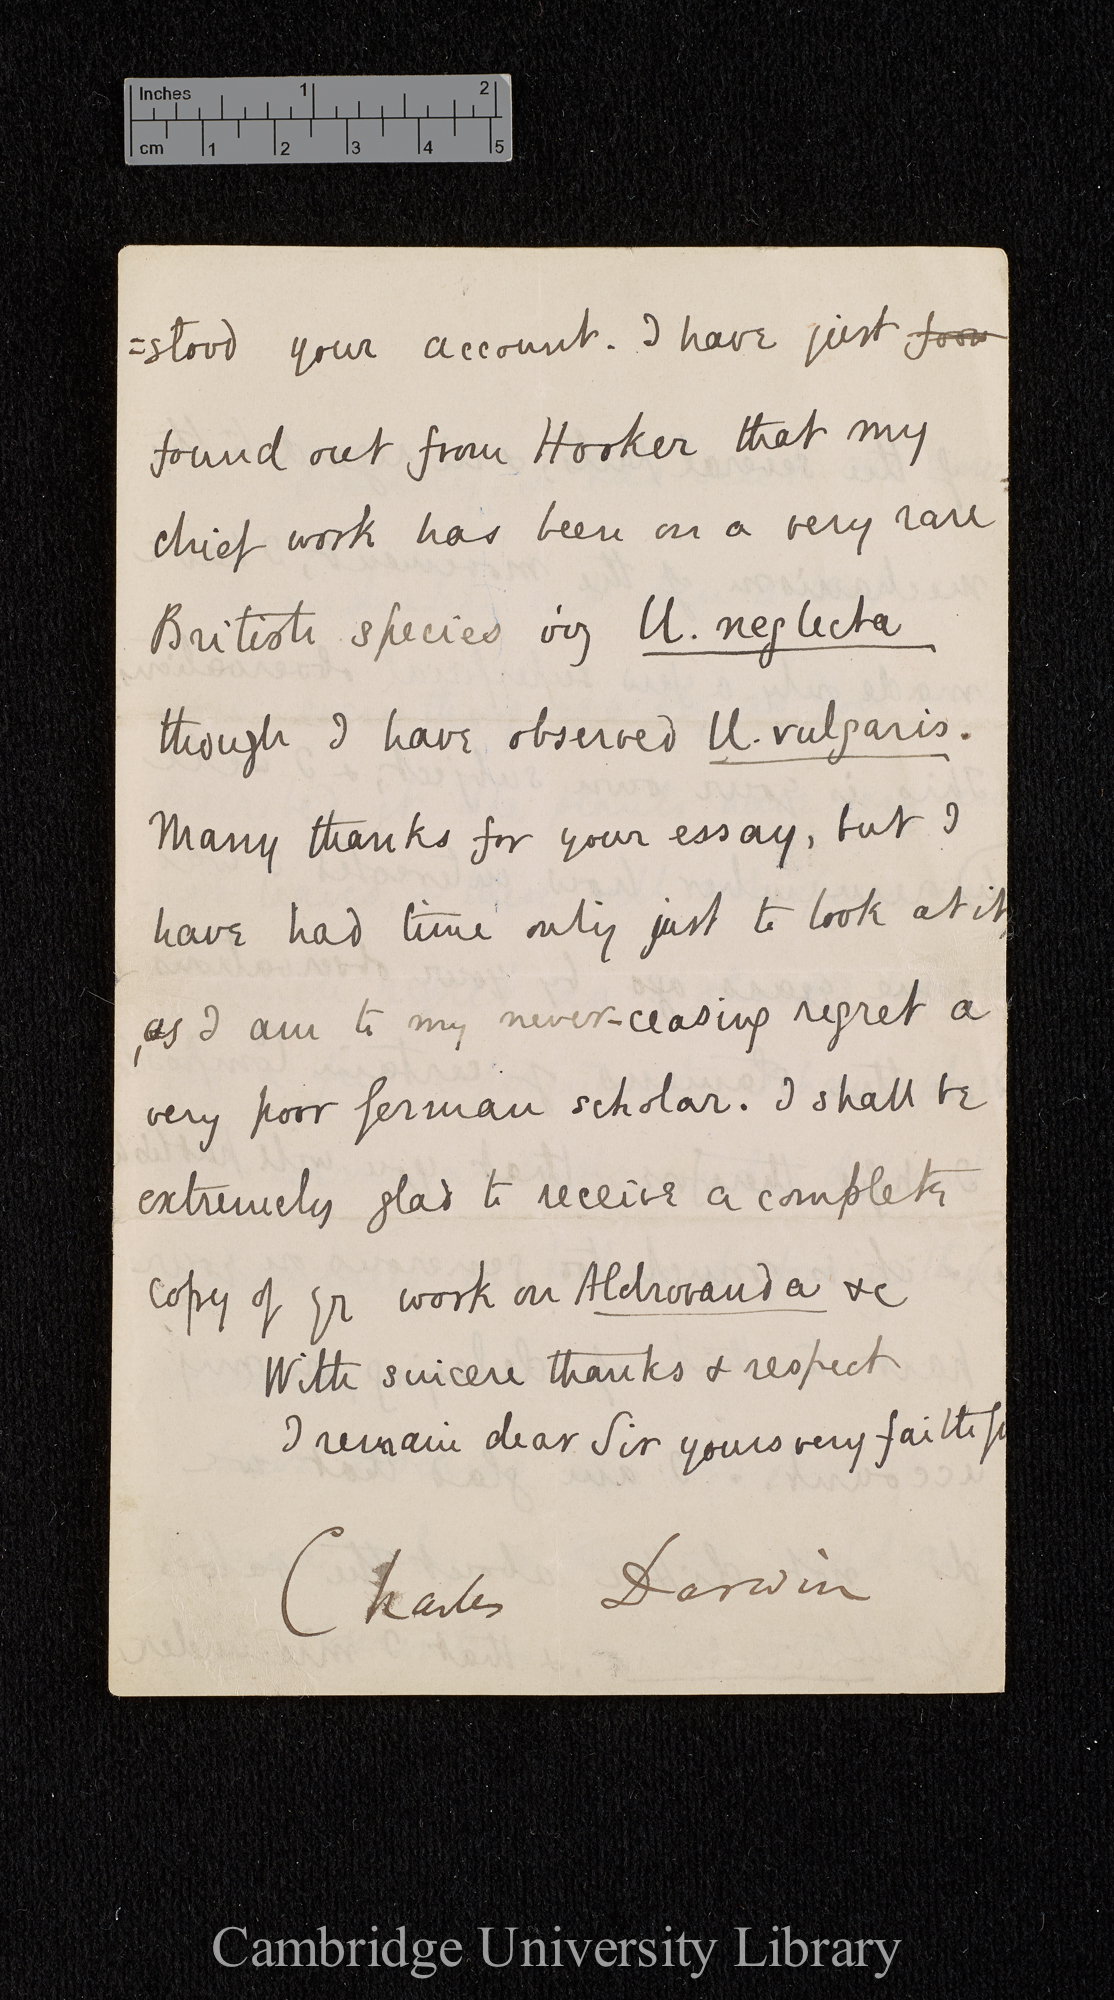 Inches 1 2
cm 1 2 3 4 5
=stood your account. I have just foun
found out from Hooker that my
chief work has been on a very rare
British species viz U. neglecta
though I have observed U. vulgaris.
Many thanks for your essay, but I
have had time only just to look at it,
as I am to my never-ceasing regret a
very poor German scholar. I shall be
extremely glad to receive a complete
copy of yr work on Aldrovanda &c
With sincere thanks & respect
I remain dear Sir yours very faithfu
Charles Darwin
Cambridge University Library